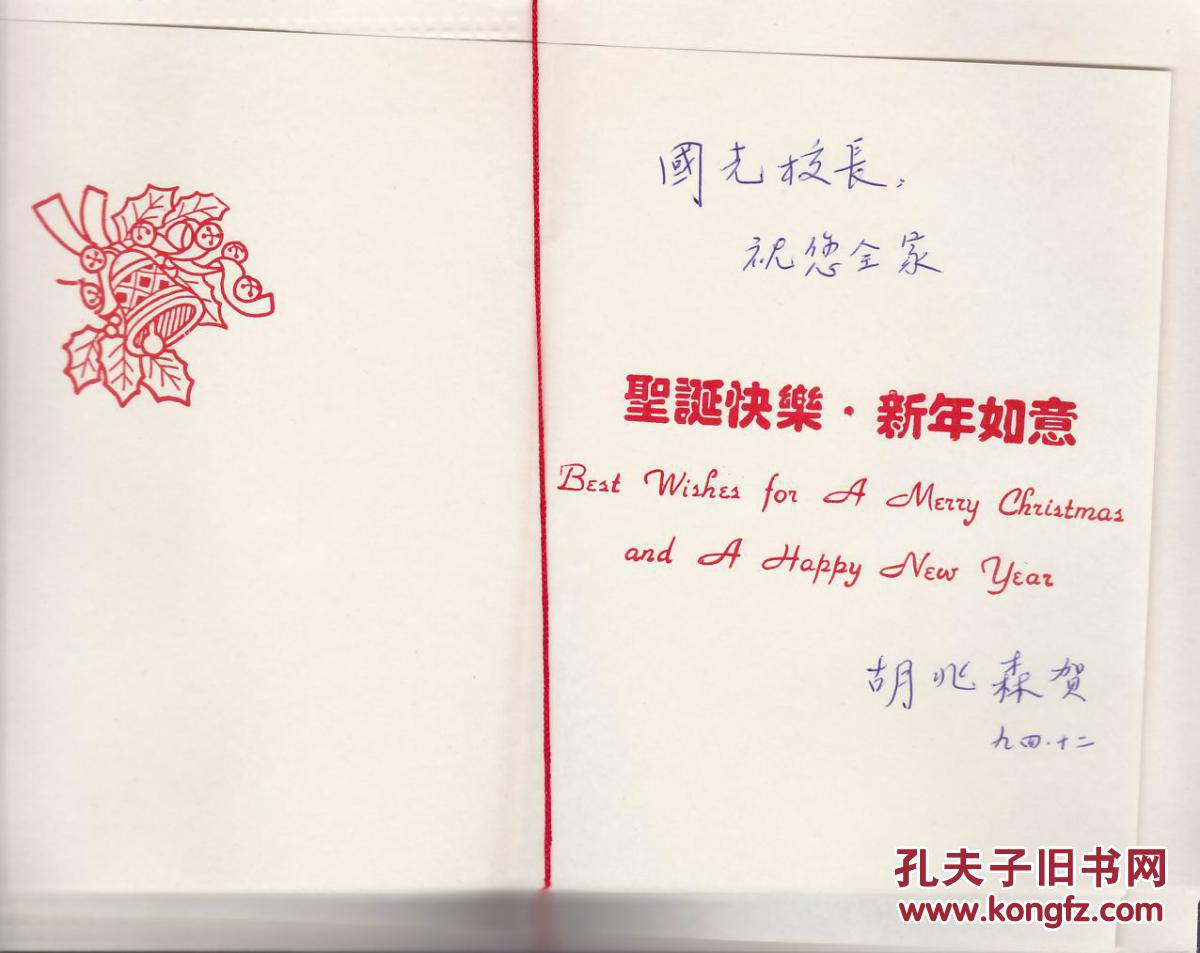 國光校長，
祝您全家
聖誕快樂·新年如意
Best Wishes for A Merry Christmas
and A Happy New Year
胡兆森賀
九四.十二
孔夫子旧书网
www.kongfz.com